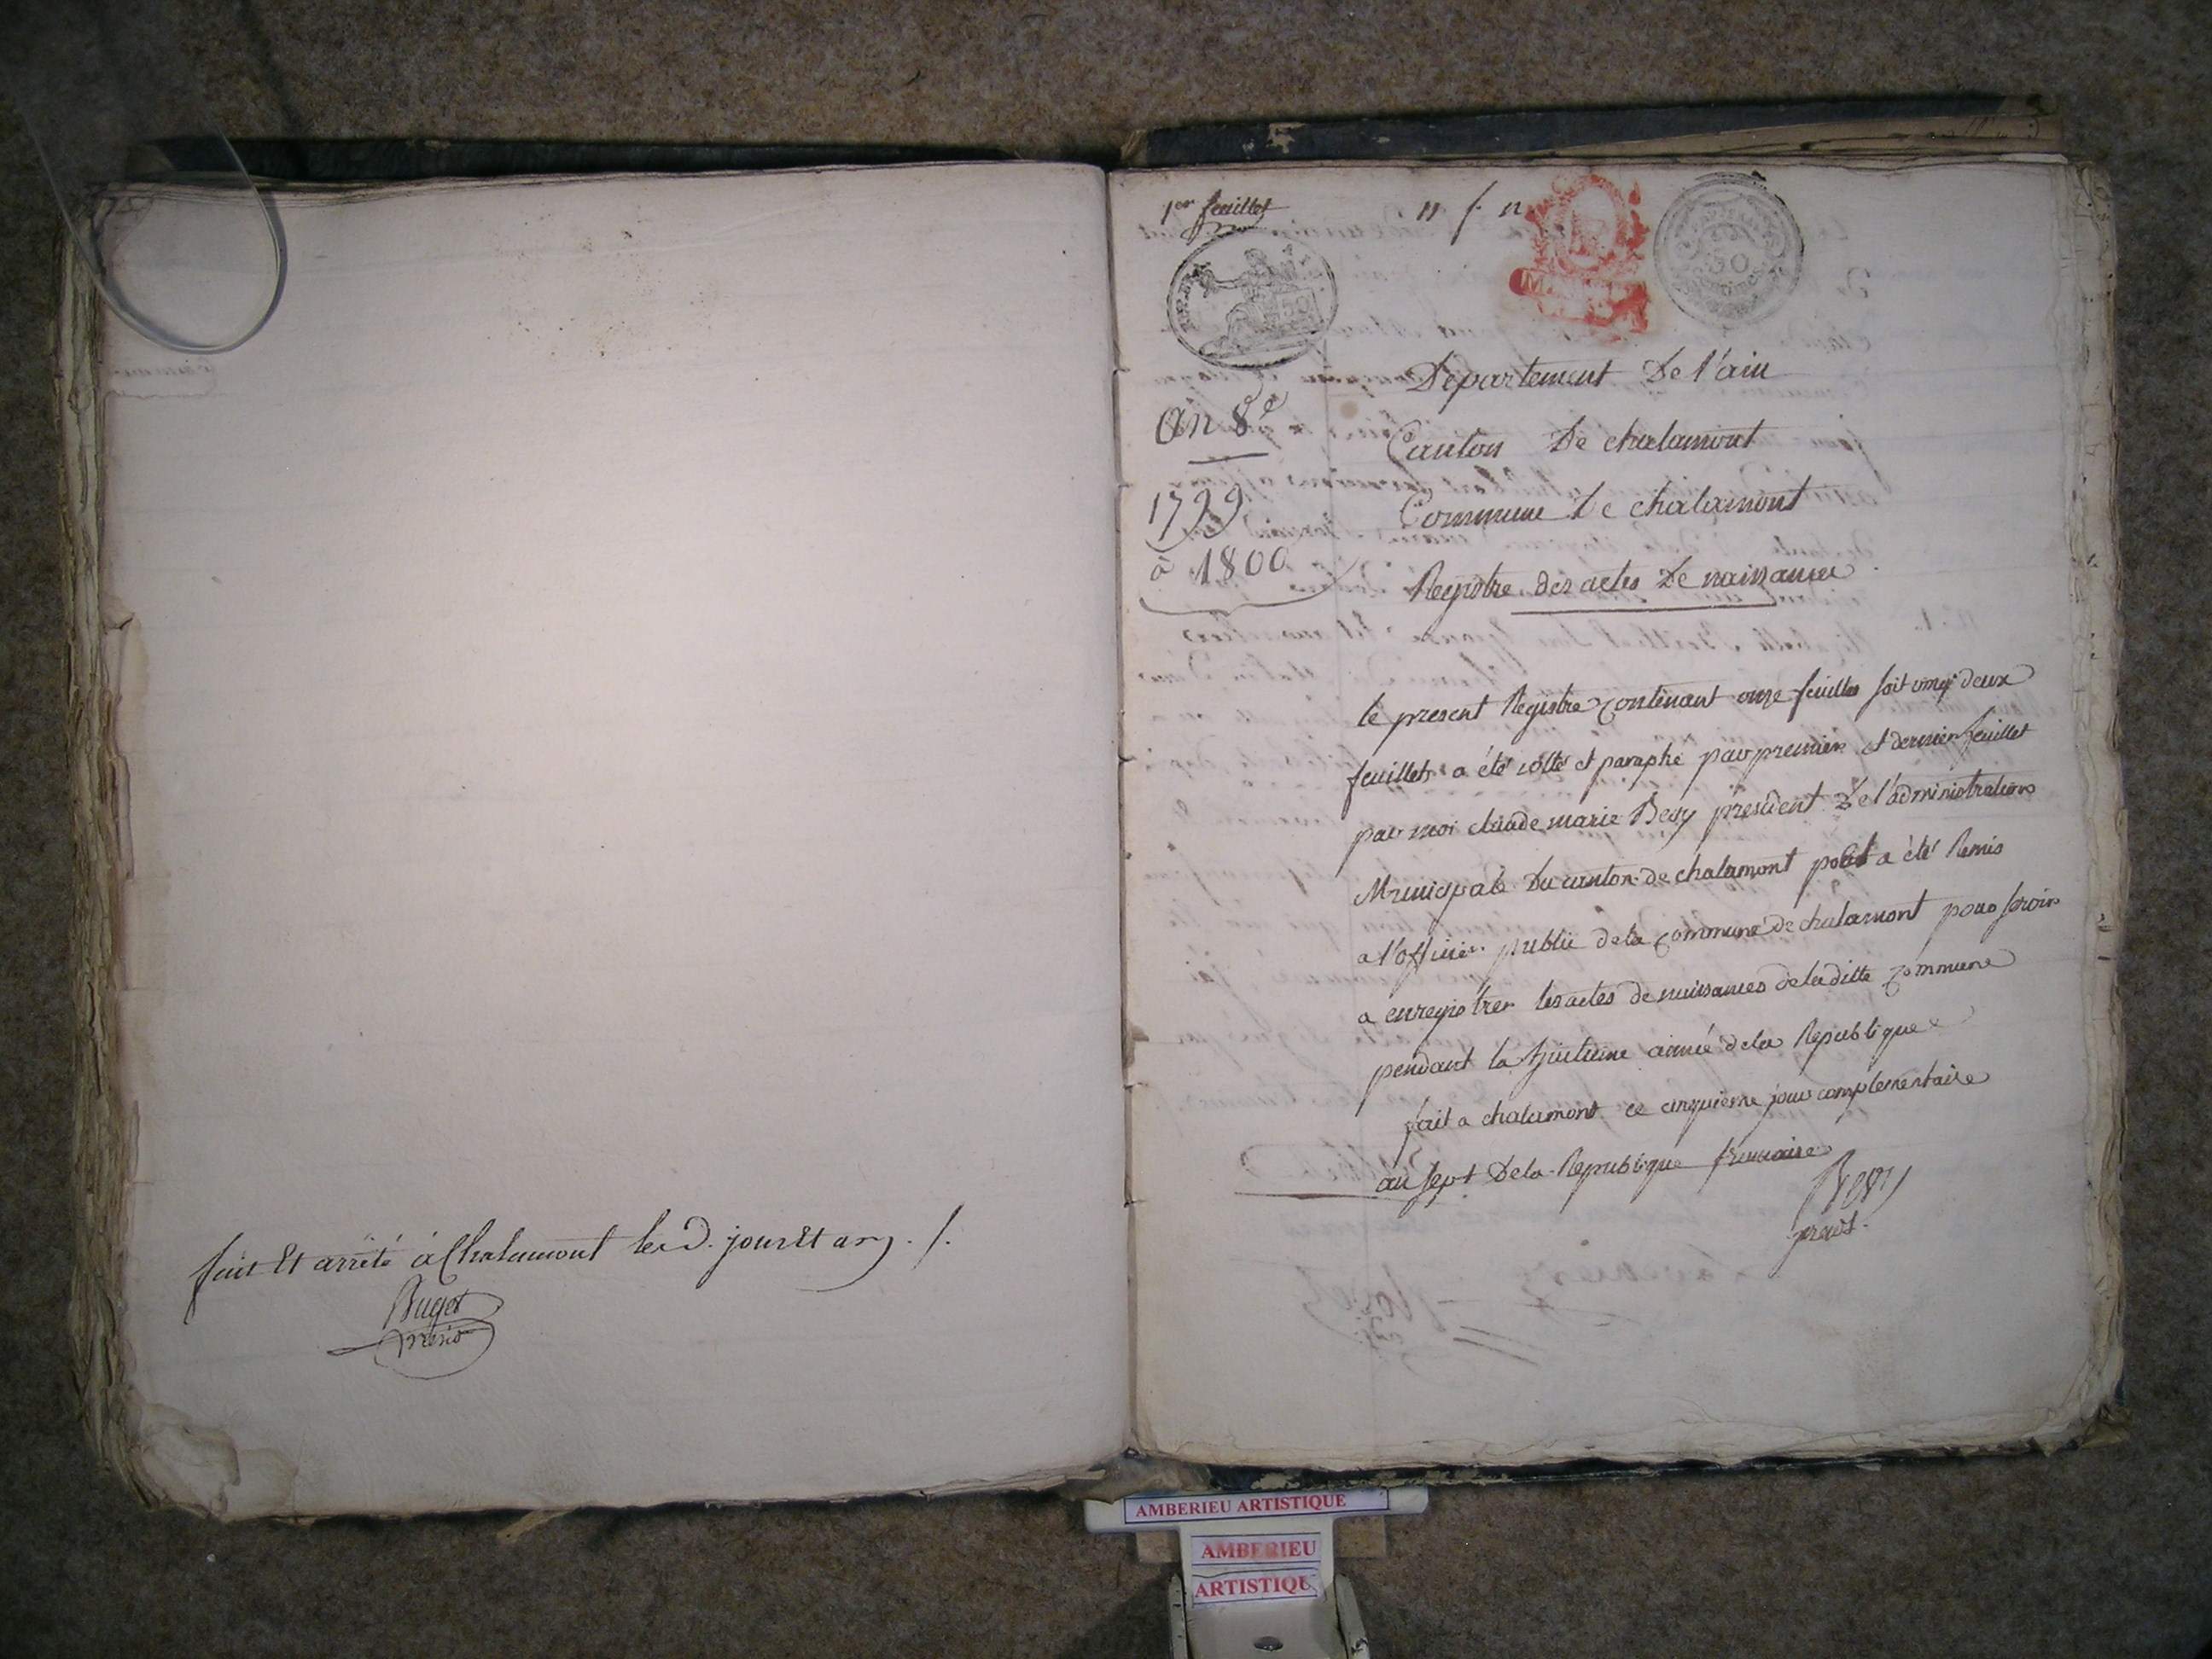 fait Et arrêté à Chalamont les d. jour Et an ./.
Buget
1er feuillet
50
50
Centimes
an 8e
1799
à 1800
Département De l'ain
Canton De chalamont
Commune De chalamont
Registre des actes De naissances
le present Registre contenant onze feuilles soit vingt deux
feuillets a été cotté et paraphé par premier et dernier feuillet
par moi claude marie president De l'administration
Municipale Du canton de chalamont a été Remis
a l'officier public de la commune de chalamont pour servir
a enregistrer les actes de naissances de la ditte commune
pendant la huitieme année de la Republique
fait a chalamont ce cinquieme jour complementaire
an sept De la Republique francaise
AMBERIEU ARTISTIQUE
AMBERIEU
ARTISTIQU